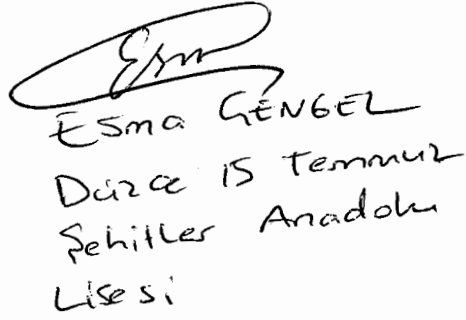 Esma GENGEL
Düzce 15 Temmuz
Şehitler Anadolu
Lisesi